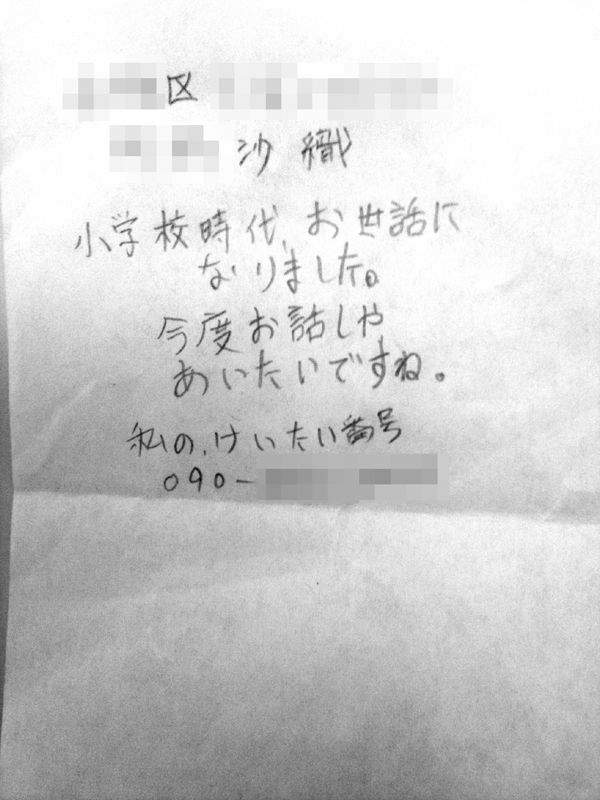 区
沙織
小学校時代、お世話に
なりました。
今度お話しや
あいたいですね。
私の、けいたい番号
090-